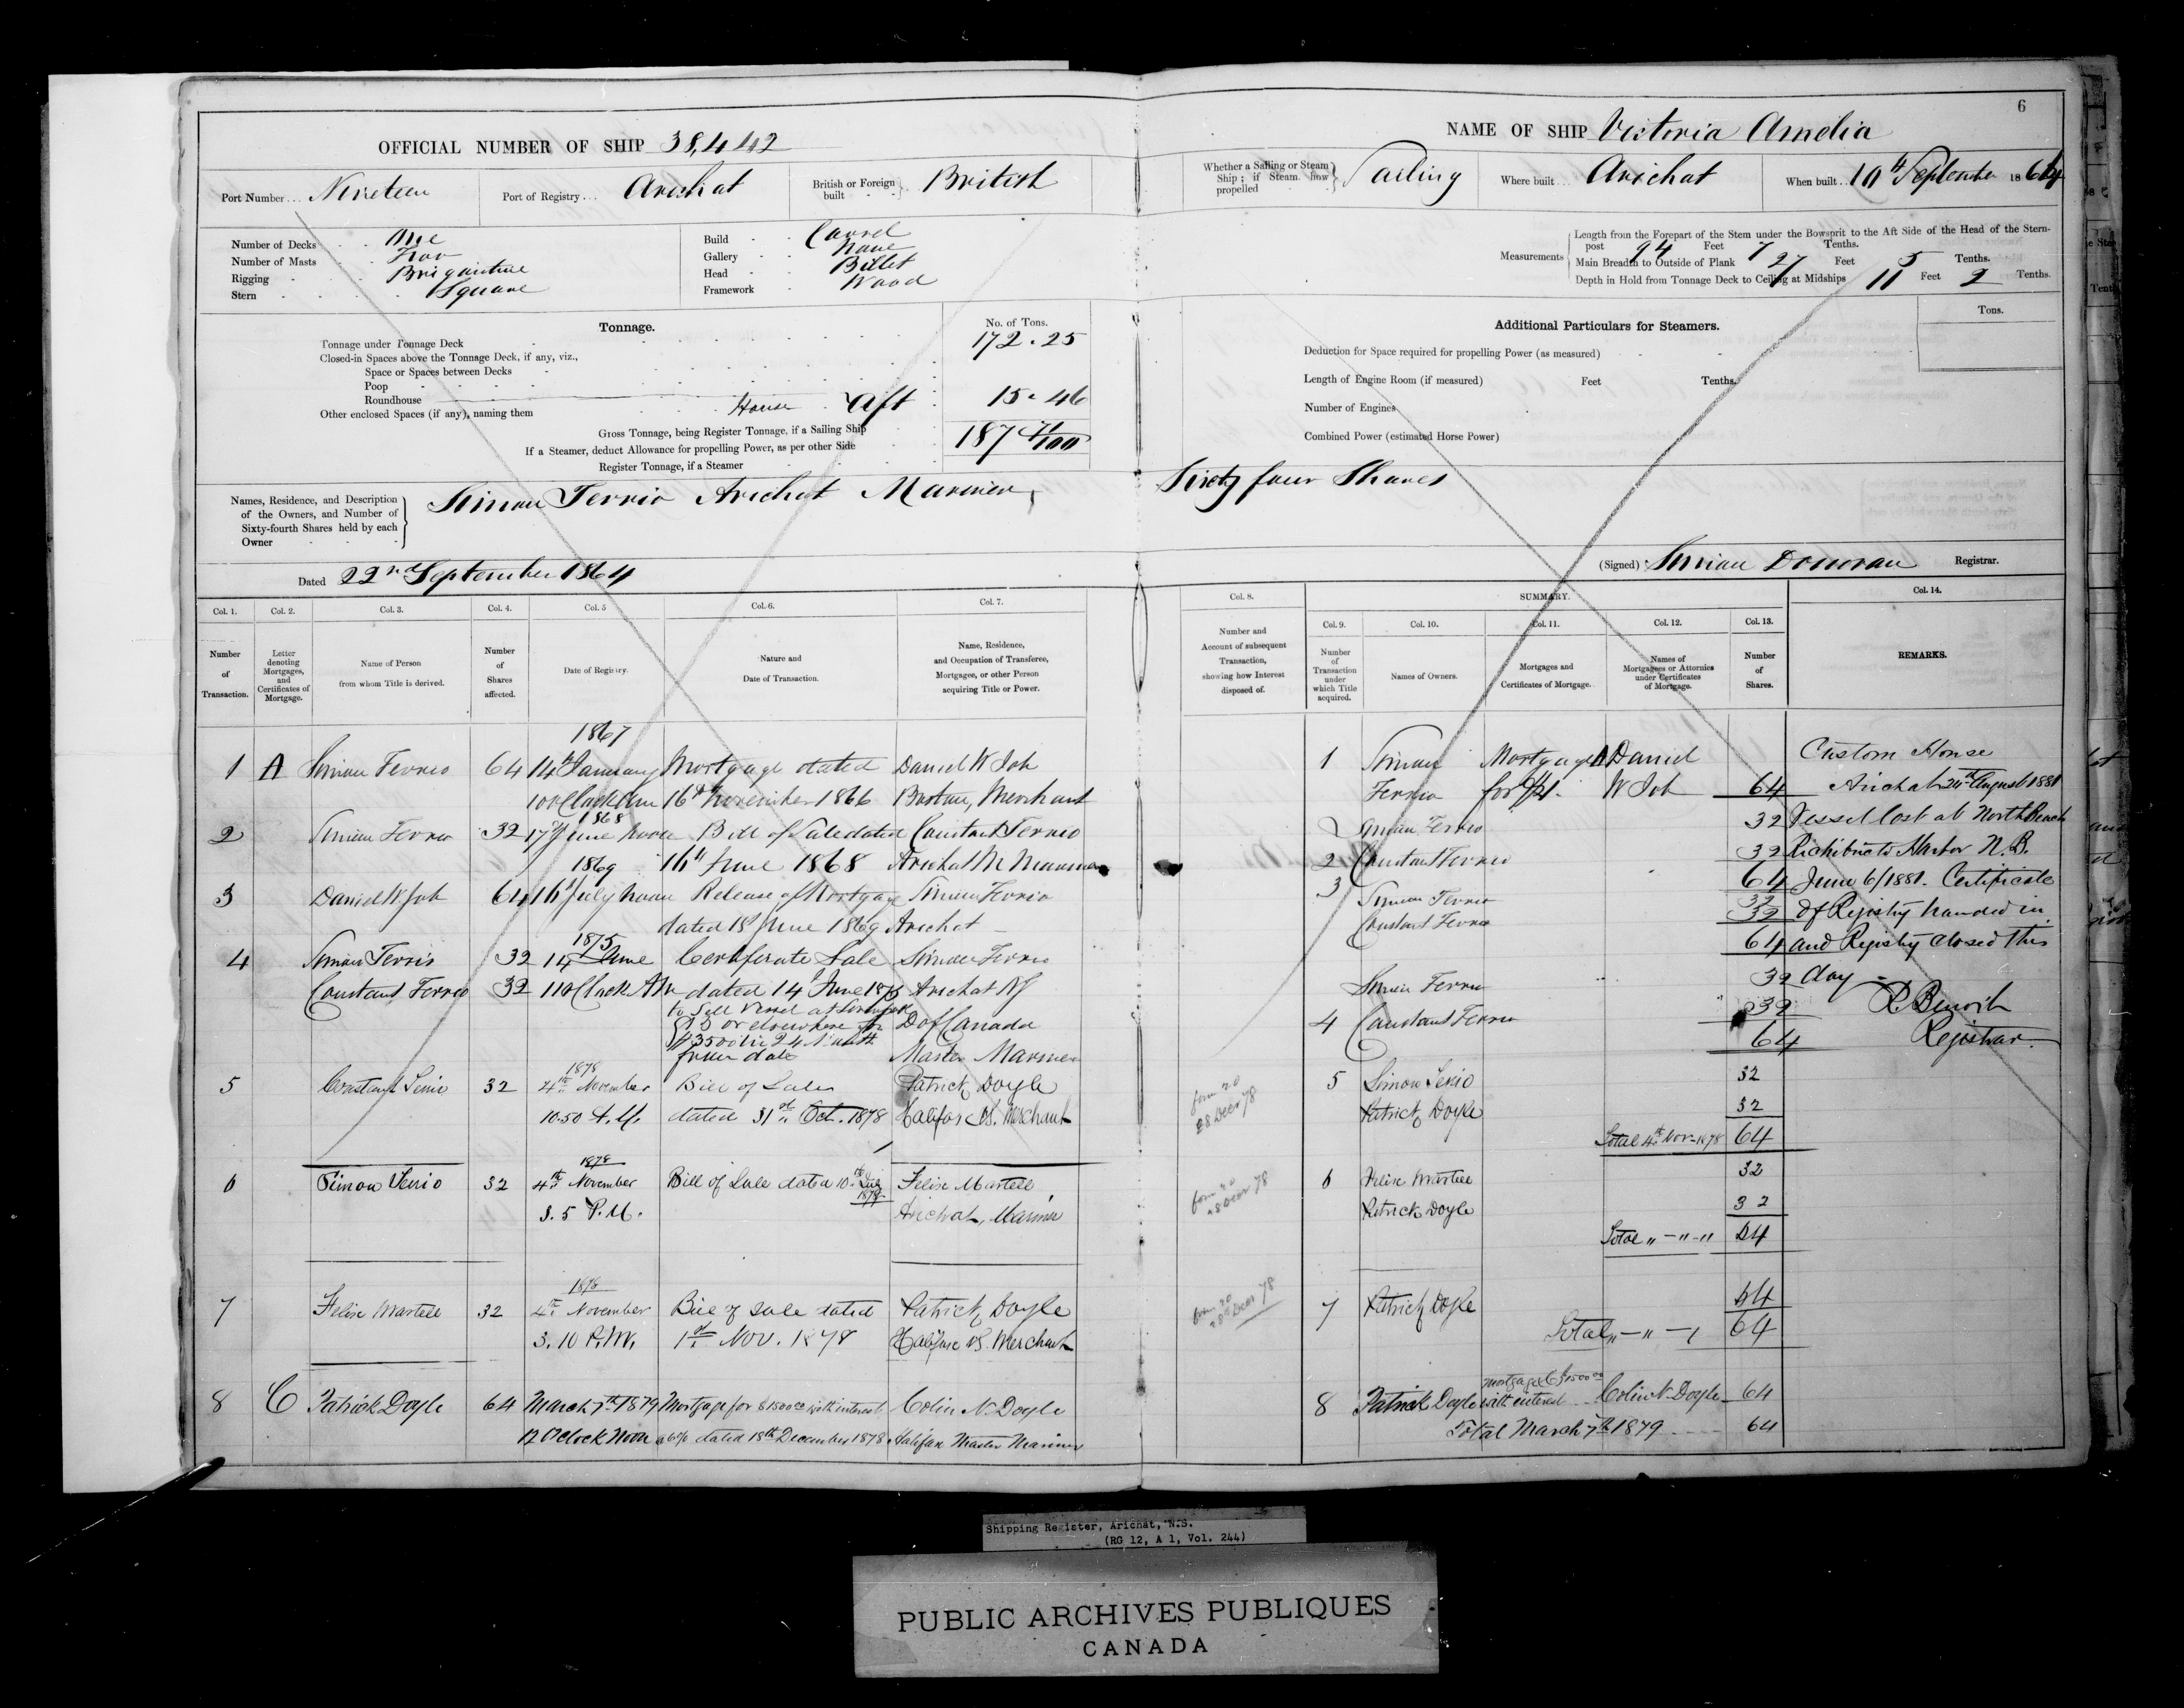 6
OFFICIAL NUMBER OF SHIP 38,442
NAME OF SHIP Victoria Amelia
Port Number... Nineteen
Port of Registry... Arichat
British or Foreign built British
Whether a Sailing or Steam Ship; if Steam how propelled Sailing
Where built... Arichat
When built.. 10th September 1864
Number of Decks One
Number of Masts Two
Rigging Brigantine
Stern Square
Build Carvel
Gallery None
Head Billet
Framework Wood
Measurements
Length from the Forepart of the Stem under the Bowsprit to the Aft Side of the Head of the Stern-
post 94 Feet 7 Tenths.
Main Breadth to Outside of Plank 27 Feet 5 Tenths.
Depth in Hold from Tonnage Deck to Ceiling at Midships 11 Feet 2 Tenths.
Tonnage.
No. of Tons.
Tonnage under Tonnage Deck 172.25
Closed-in Spaces above the Tonnage Deck, if any, viz.,
Space or Spaces between Decks
Poop
Roundhouse
Other enclosed Spaces (if any), naming them House Aft 15.46
Gross Tonnage, being Register Tonnage, if a Sailing Ship 187 71/100
If a Steamer, deduct Allowance for propelling Power, as per other Side
Register Tonnage, if a Steamer
Additional Particulars for Steamers.
Tons.
Deduction for Space required for propelling Power (as measured)
Length of Engine Room (if measured) Feet Tenths.
Number of Engines
Combined Power (estimated Horse Power)
Names, Residence, and Description
of the Owners, and Number of
Sixty-fourth Shares held by each
Owner
Simon Terrio Arichat Mariner, Sixty four Shares
Dated 22nd September 1864
(Signed) Simon Donovan Registrar.
Col. 1. Col. 2. Col. 3. Col. 4. Col. 5 Col. 6. Col. 7.
Number of Transaction.
Letter denoting Mortgages, and Certificates of Mortgage.
Name of Person from whom Title is derived.
Number of Shares affected.
Date of Registry.
Nature and Date of Transaction.
Name, Residence, and Occupation of Transferee, Mortgagee, or other Person acquiring Title or Power.
Col. 8.
Number and Account of subsequent Transaction, showing how Interest disposed of.
SUMMARY.
Col. 9. Col. 10. Col. 11. Col. 12. Col. 13.
Number of Transaction under which Title acquired.
Names of Owners.
Mortgages and Certificates of Mortgage.
Names of Mortgagees or Attornies under Certificates of Mortgage.
Number of Shares.
Col. 14.
REMARKS.
1867
1 A Simon Terrio 64 14th January Mortgage dated Daniel W Job
10 O'Clock 16th November 1866 Boston, Merchant
1868
2 Simon Terrio 32 17th June noon Bill of Sale dated Constant Terrio
16th June 1868 Arichat Mariner
1869
3 Daniel W Job 64 16th July noon Release of Mortgage Simon Terrio
dated 18th June 1869 Arichat
1875
4 Simon Terrio 32 14 June Certificate Sale Simon Terrio
Constant Terrio 32 11 O'Clock AM dated 14 June 1875 Arichat NS
to sell vessel at
or elsewhere for D of Canada
$3500 in 24 Months
from date Master Mariner
1878
5 Constant Terrio 32 4th November Bill of Sale Patrick Doyle
10.50 A.M. dated 31st Oct. 1878 Halifax N.S. Merchant
1878
6 Simon Terrio 32 4th November Bill of Sale dated 10th Felix Martell,
3.5 P.M. Arichat, Mariner
1878
7 Felix Martell 32 4th November Bill of Sale dated Patrick Doyle
3.10 P.M. 1st Nov. 1878 Halifax N.S. Merchant
8 C Patrick Doyle 64 March 7th 1879 Mortgage for $1500.00 with interest Colin N. Doyle
12 O'Clock Noon at 6% dated 18th December 1878 Halifax Master Mariner
form 20
28 Decr 78
form 20
28 Decr 78
form 20
28 Decr 78
1 Simon Mortgage A Daniel
Terrio W Job 64
2 Simon Terrio 32
2 Constant Terrio 32
64
3 Simon Terrio 32
Constant Terrio 32
64
Simon Terrio 32
4 Constant Terrio 32
64
5 Simon Terrio 32
Patrick Doyle 32
Total 4th Nov. 1878 64
6 Felix Martell 32
Patrick Doyle 32
Total " — " — " 64
7 Patrick Doyle 64
Total " — " — " 64
8 Patrick Doyle Mortgage C $1500.00 with interest Colin N. Doyle 64
Total March 7th 1879 64
Custom House
Arichat 24th August 1881
Vessel lost at North Beach
Richibucto Harbor N.B.
June 6/1881. Certificate
of Registry handed in
and Registry closed this
day
R. Benoit
Registrar.
Shipping Register, Arichat, N.S.
(RG 12, A 1, Vol. 244)
PUBLIC ARCHIVES PUBLIQUES
CANADA